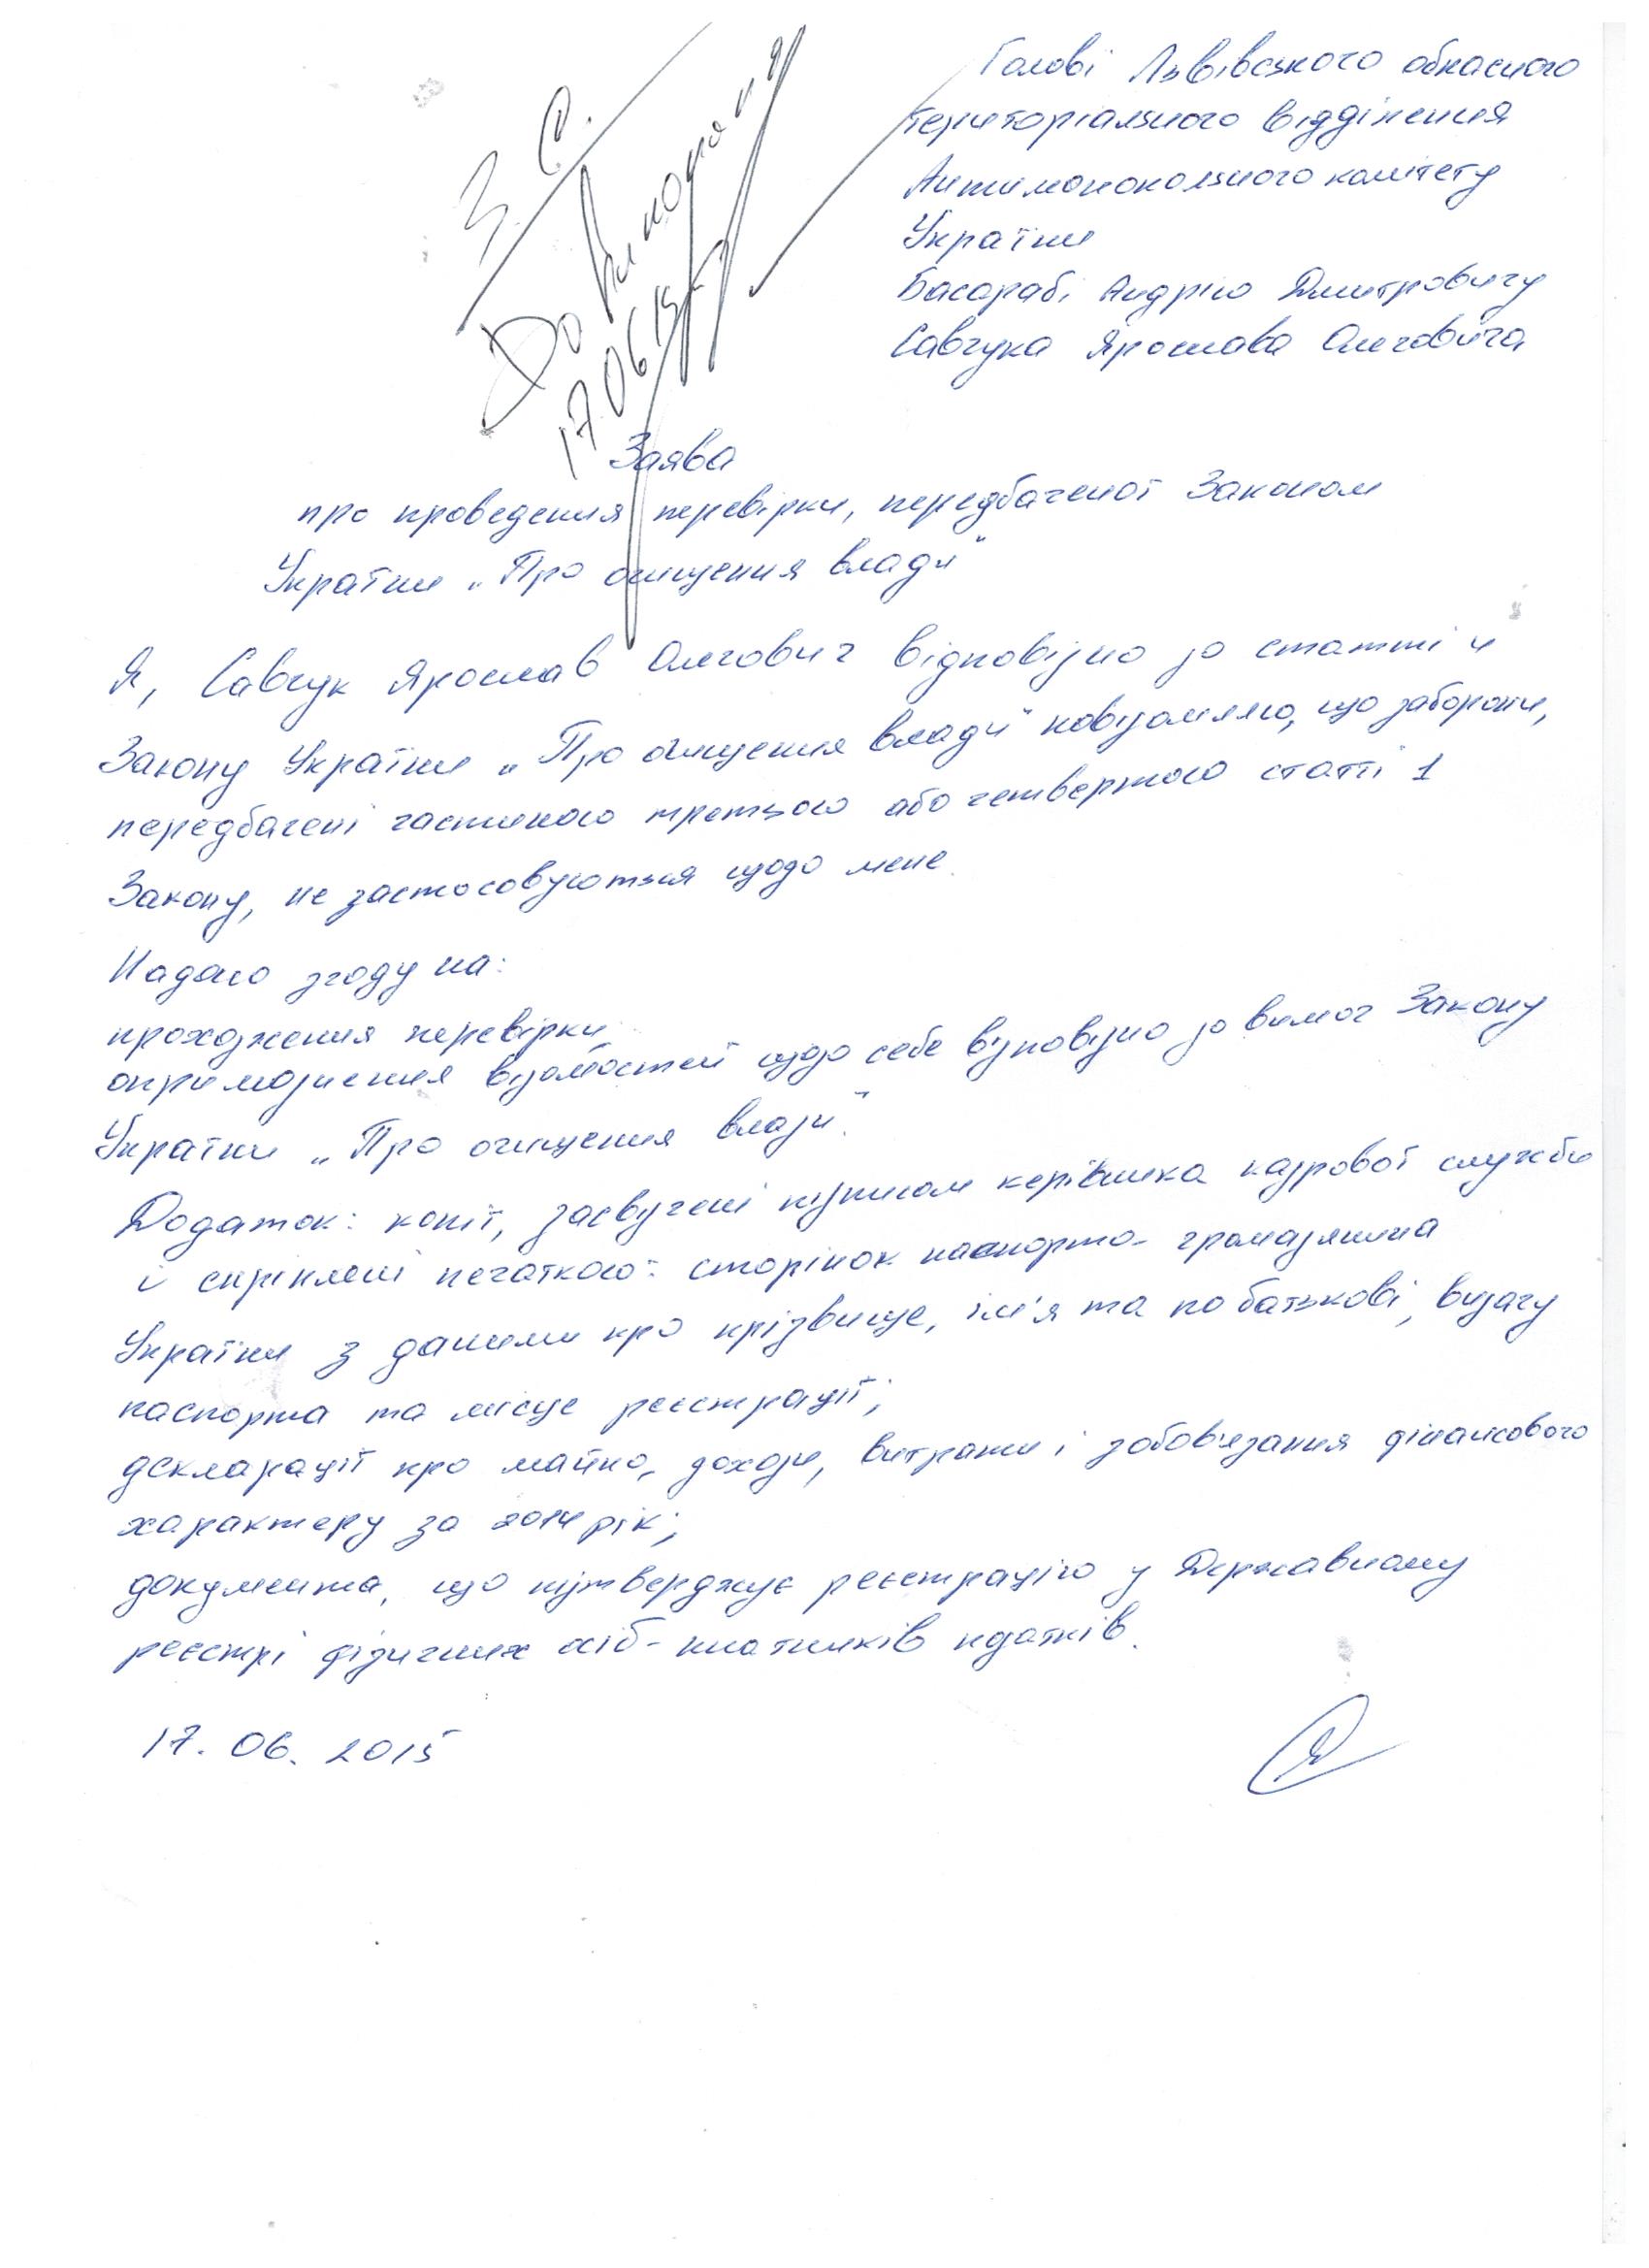 Голові Львівського обласного
територіального відділення
Антимонопольного комітету
України
Басарабі Андрію Дмитровичу
Савчука Ярослава Олеговича
З. С.
До виконання
17 06 15
Заява
про проведення перевірки, передбаченої Законом
України „Про очищення влади“
Я, Савчук Ярослав Олегович відповідно до статті 4
Закону України „Про очищення влади“ повідомляю, що заборони,
передбачені частиною третьою або четвертою статті 1
Закону, не застосовуються щодо мене.
Надаю згоду на:
проходження перевірки;
оприлюднення відомостей щодо себе відповідно до вимог Закону
України „Про очищення влади“.
Додаток: копії, засвідчені підписом керівника кадрової служби
і скріплені печаткою: сторінок паспорта громадянина
України з даними про прізвище, ім'я та по батькові, видачу
паспорта та місце реєстрації;
декларації про майно, доходи, витрати і зобов'язання фінансового
характеру за 2014 рік;
документа, що підтверджує реєстрацію у Державному
реєстрі фізичних осіб-платників податків.
17. 06. 2015